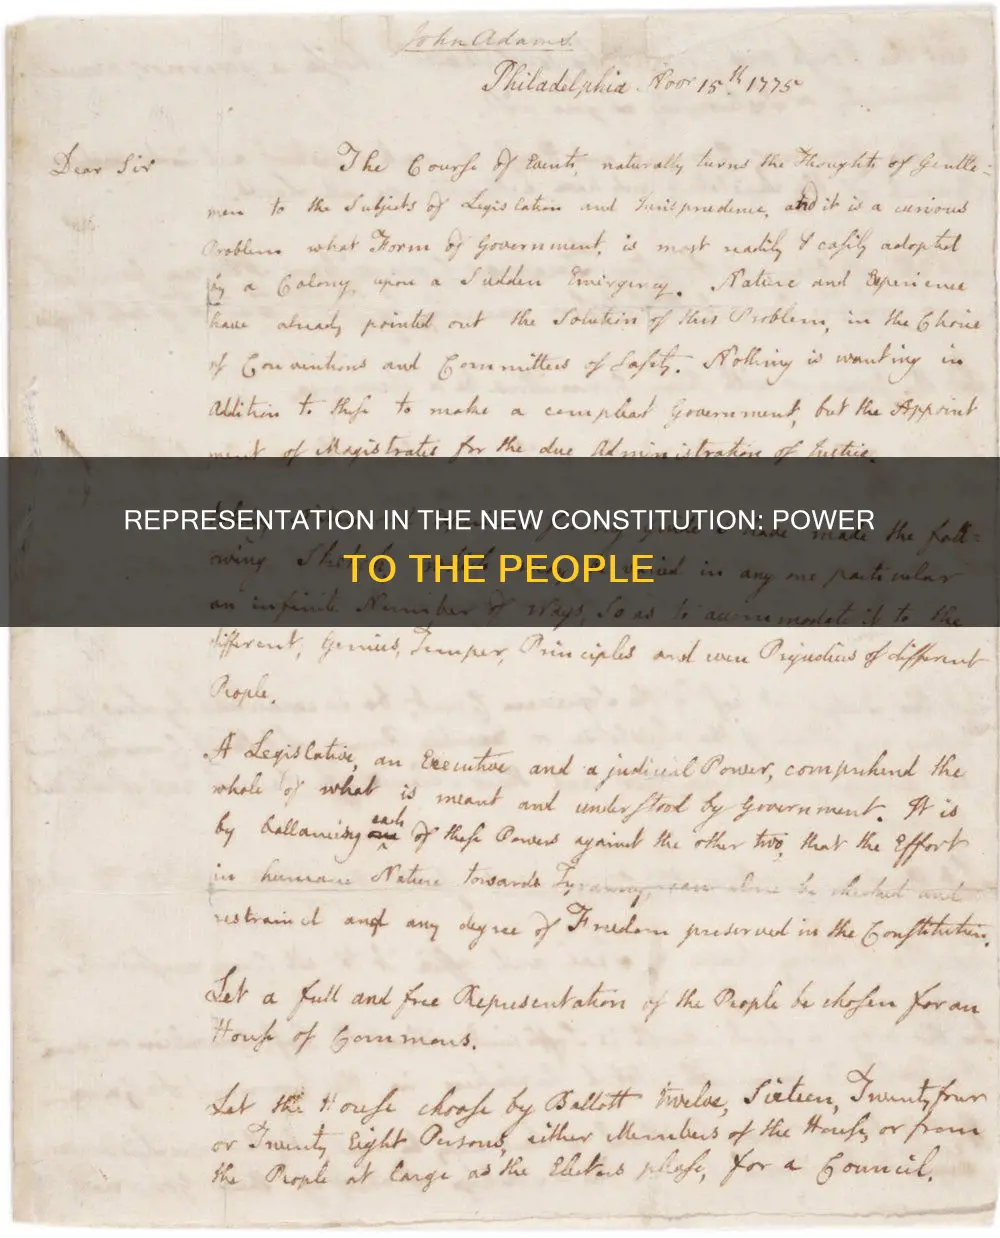 John Adams.
Philadelphia Novr 15th. 1775
Dear Sir
The Course of Events, naturally turns the Thoughts of Gentle=
men to the Subjects of Legislation and Jurisprudence, and it is a curious
Problem what Form of Government, is most readily & easily adopted
by a Colony, upon a Sudden Emergency. Nature and Experience
have already pointed out the Solution of this Problem, in the Choice
of Conventions and Committees of Safety. Nothing is wanting in
Addition to these to make a compleat Government, but the Appoint
ment of Magistrates for the due Administration of Justice.
REPRESENTATION IN THE NEW CONSTITUTION: POWER
TO THE PEOPLE
made the foll=
owing Sketch in any one particular
an infinite Number of Ways, So as to accommodate it to the
different, Genius, Temper, Principles and even Prejudices of different
People.
A Legislative, an Executive and a judicial Power, comprehend the
whole of what is meant and understood by Government. It is
by ballancing each of these Powers against the other two, that the Effort
in humane Nature towards Tyranny, can alone be checked and
restrained and any degree of Freedom preserved in the Constitution.
Let a full and free Representation of the People be chosen for an
House of Commons.
Let the House choose by Ballott twelve, Sixteen, Twenty four
or Twenty Eight Persons, either Members of the House, or from
the People at large as the Electors please, for a Council.